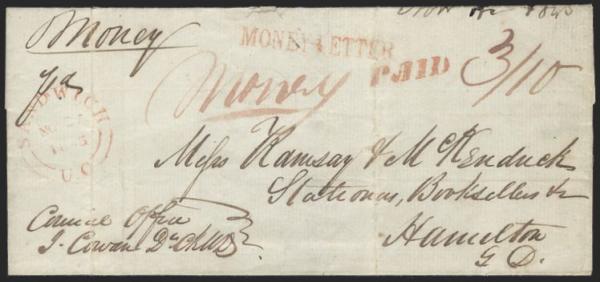 Money
MONEY LETTER
Money
PAID
3/10
SANDWICH
U C
Miss Ramsay & McKendrick
Stationers, Booksellers &c
Hamilton
G. D.
Council Office
J. Cowan